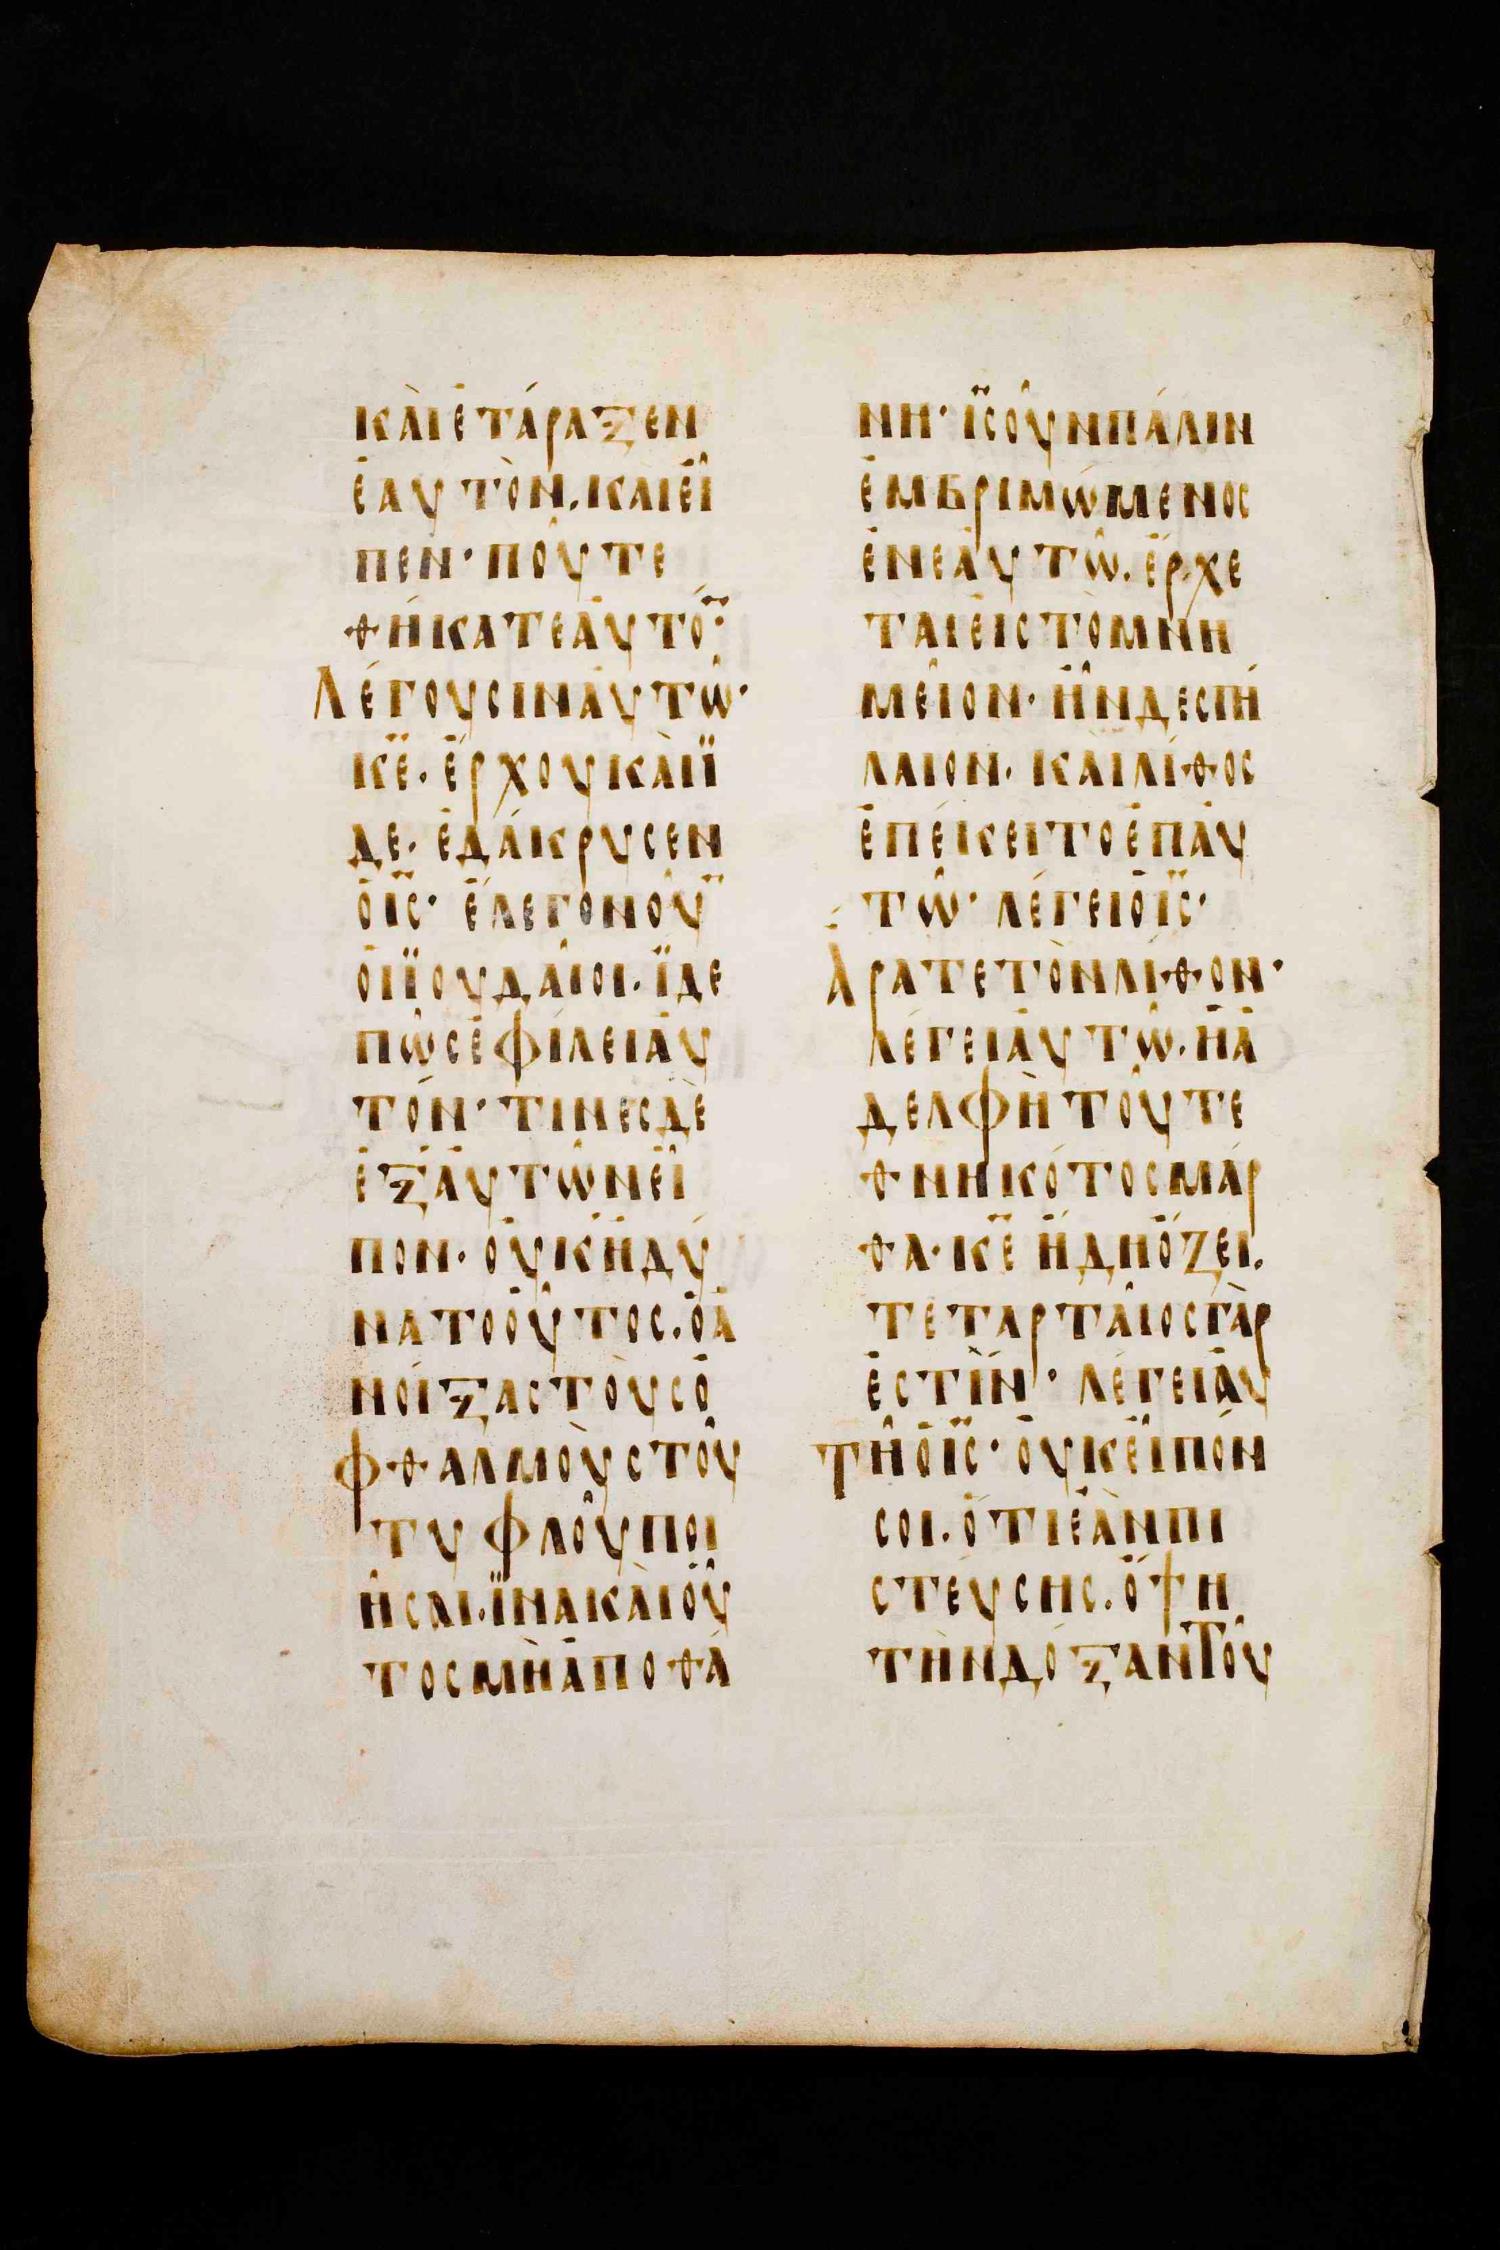 ΚΑῚἘΤΆΡΑΞΕΝ
ἙΑΥΤῸΝ. ΚΑΙΕἾ
ΠΕΝ· ΠΟΥ͂ΤΕ
ΘΉΚΑΤΕΑΥ̓ΤΌ̈·
ΛΈΓΟΥΣΙΝΑΥ̓ΤΩ͂·
ΚΕ̅. ἜΡΧΟΥΚΑῚΪ
ΔΕ. ἘΔΆΚΡΥΣΕΝ
ὉΙΣ̅· ἜΛΕΓΟΝΟΥ̓͂
ΟἹΪΟΥΔΑΙ͂ΟΙ. ΪΔΕ
ΠΩ͂ΣἘΦΊΛΕΙΑΥ̓
ΤΌΝ· ΤΙΝΕΣΔῈ
ἘΞΑΥ̓ΤΩ͂ΝΕἾ
ΠΟΝ· ΟΥ̓ΚἨΔΎ
ΝΑΤΟΟὟΤΟΣ. ὉἈ
ΝΟΊΞΑΣΤΟῪΣὈ
ΦΘΑΛΜΟῪΣΤΟΥ͂
ΤΥΦΛΟΥ͂ΠΟΙ
ΗΣΑΙ. ΪΝΑΚΑῚΟὟ
ΤΟΣΜῊἈΠΟΘΆ
ΝΗ· ΙΣ̅ΟΥ̓͂ΝΠΆΛΙΝ
ἘΜΒΡΙΜΏΜΕΝΟΣ
ἘΝΕΑὙΤΩ͂. ἜΡΧΕ
ΤΑΙΕἸΣΤῸΜΝΗ
ΜΕΙ͂ΟΝ· ἮΝΔΕΣΠΉ
ΛΑΙΟΝ. ΚΑῚΛΊΘΟΣ
ἘΠΈΚΕΙΤΟἘΠΑΥ̓
ΤΩ͂· ΛΈΓΕΙὉΙΣ̅·
ἌΡΑΤΕΤῸΝΛΊΘΟΝ·
ΛΈΓΕΙΑΥ̓ΤΩ͂. ἩἈ
ΔΕΛΦῊΤΟΥ͂ΤΕ
ΘΝΗΚΌΤΟΣΜΆΡ
ΘΑ· ΚΕ̅ ἬΔΗὌΖΕΙ.
ΤΕΤΑΡΤΑΙ͂ΟΣΓᾺΡ
ἘΣΤῚΝ· ΛΈΓΕΙΑΥ̓
ΤΗ͂ὉΙΣ̅· ΟΥ̓ΚΕἾΠΟΝ
ΣΟΙ. ὍΤΙἘᾺΝΠΙ
ΣΤΕΎΣΗΣ. ὌΨΗ
ΤῊΝΔΌΞΑΝΤΟΥ͂